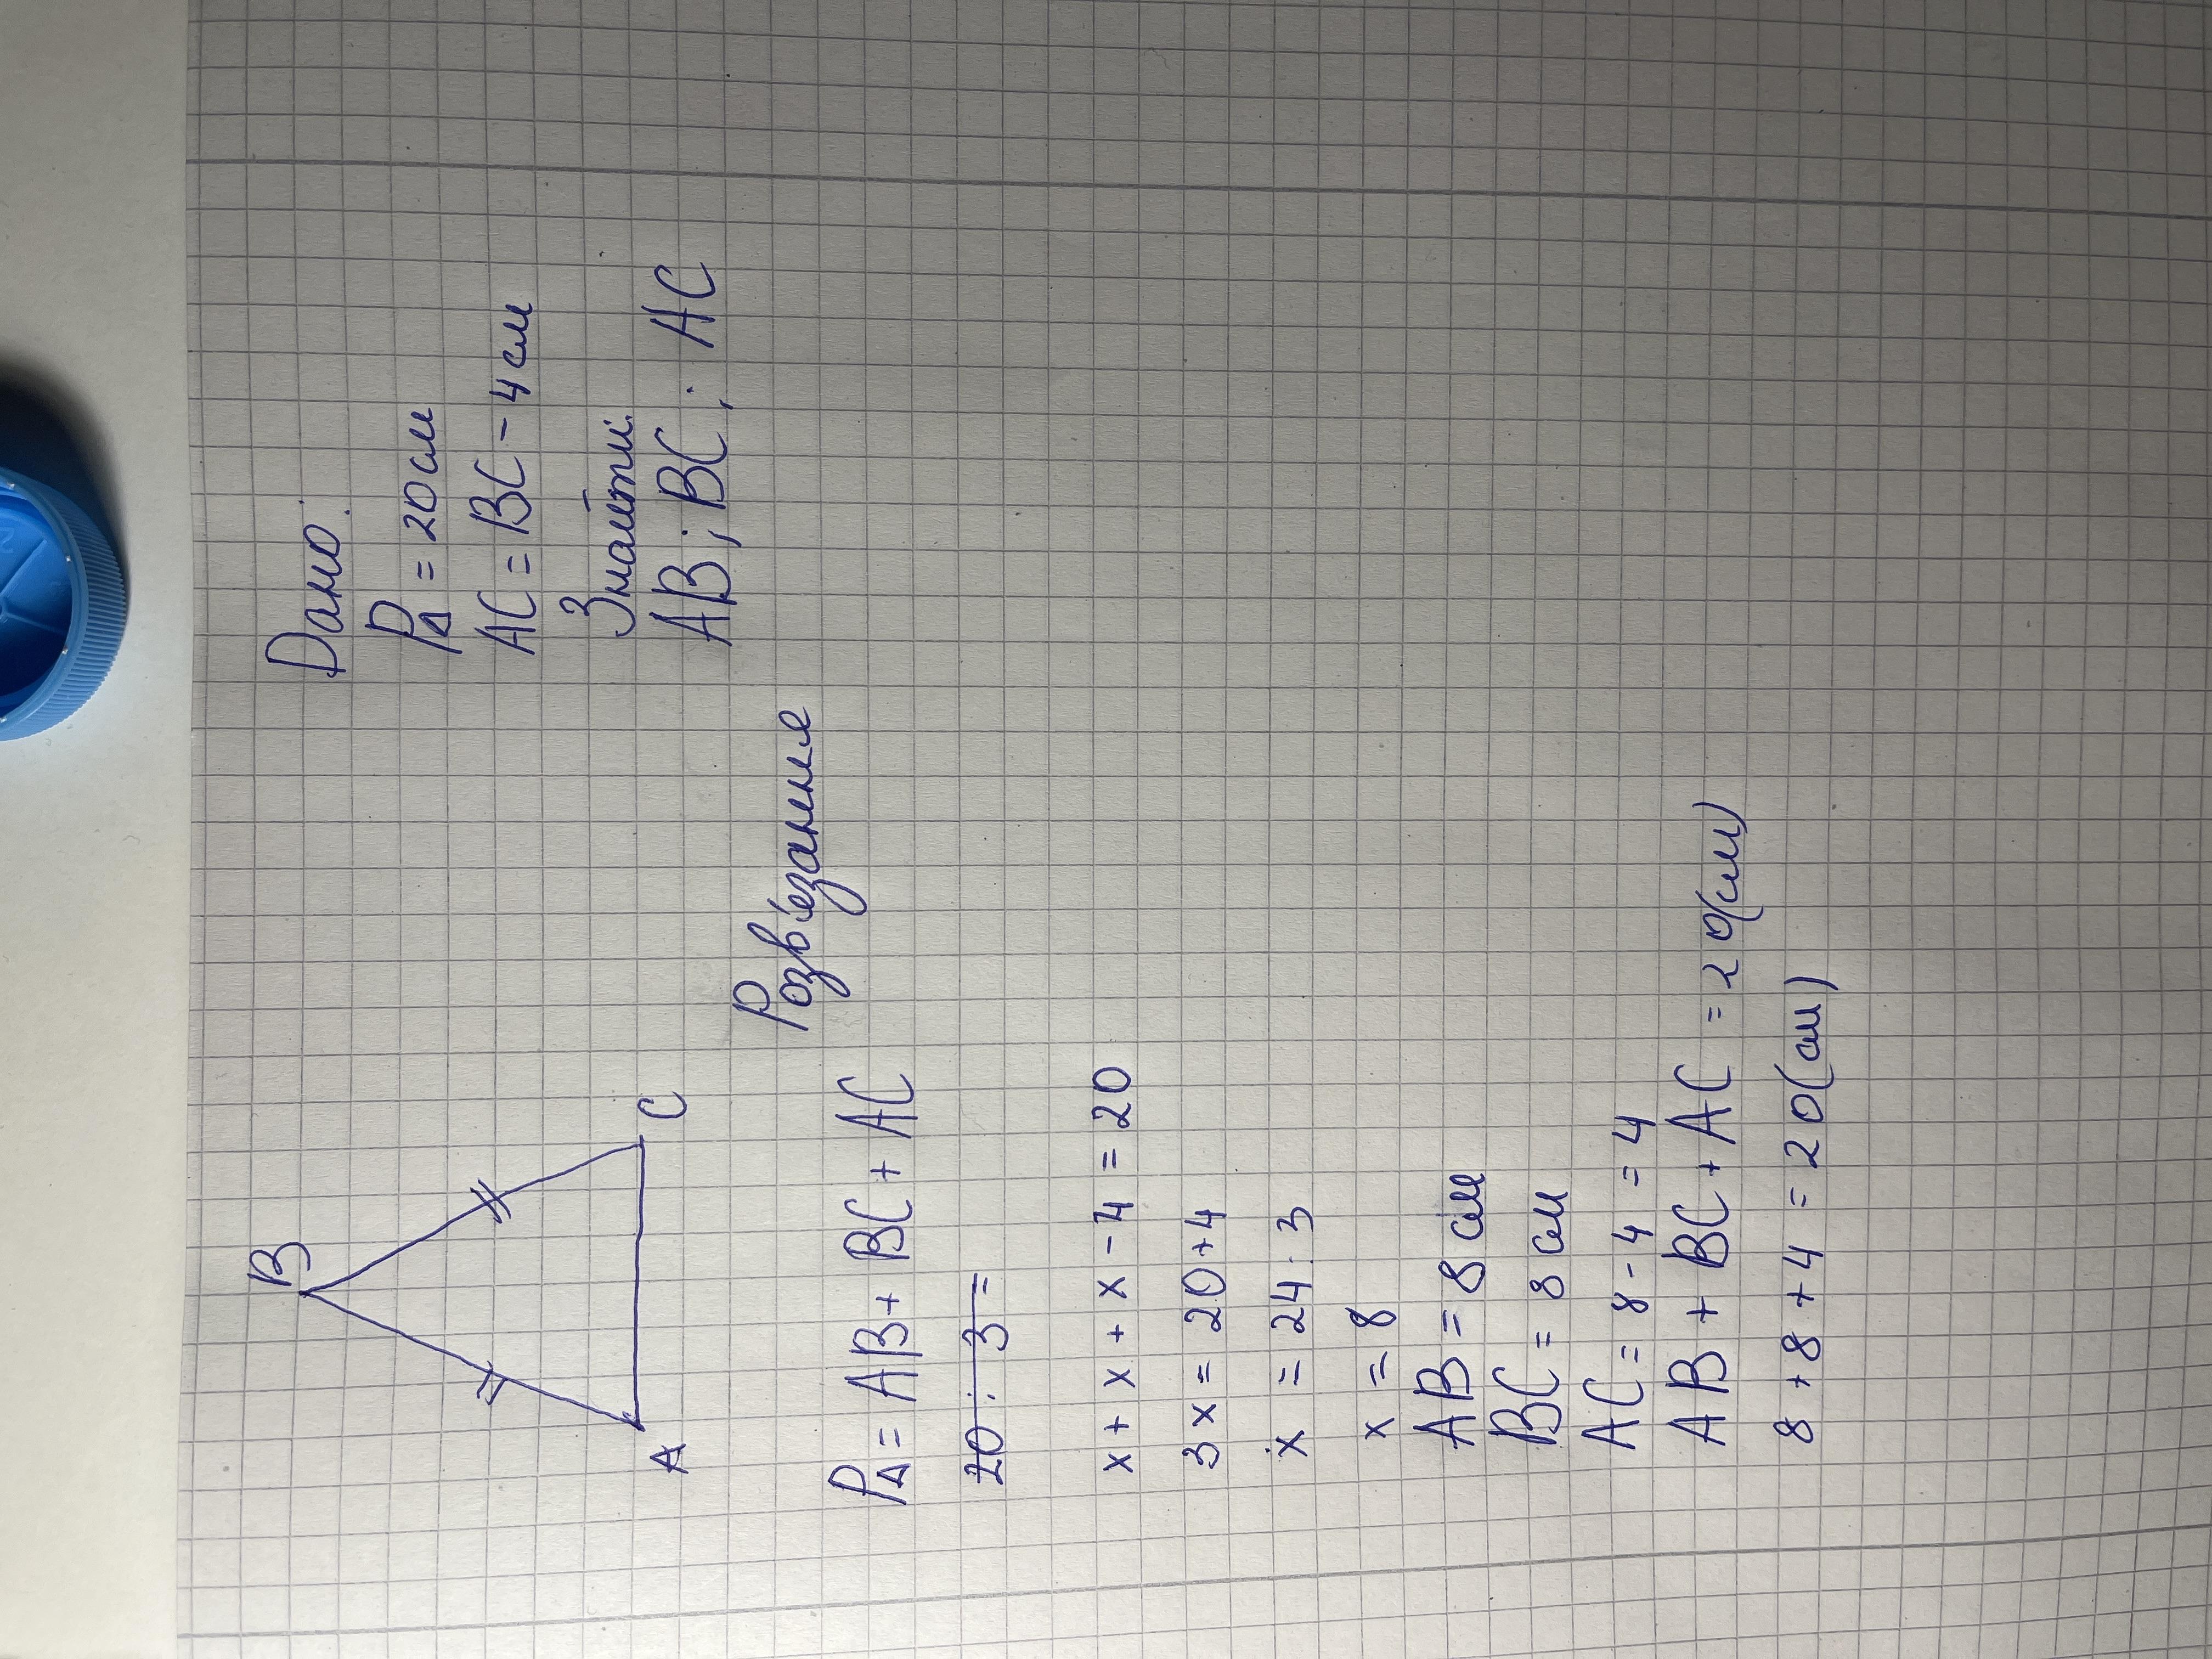 B
A
C
Дано:
P△ = 20см
AC = BC - 4см
Знайти:
AB; BC; AC
Розв'язання
P△ = AB + BC + AC
20 : 3 =
x + x + x - 4 = 20
3x = 20+4
x = 24 : 3
x = 8
AB = 8 см
BC = 8 см
AC = 8 - 4 = 4
AB + BC + AC = 20(см)
8 + 8 + 4 = 20(см)